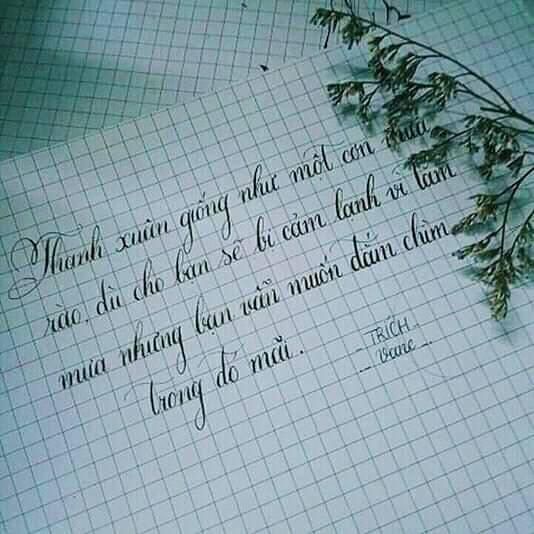 Thanh xuân giống như một cơn mưa
rào, dù cho bạn sẽ bị cảm lạnh vì tắm
mưa nhưng bạn vẫn muốn đắm chìm
trong đó mãi.
- TRÍCH -
- vanc -